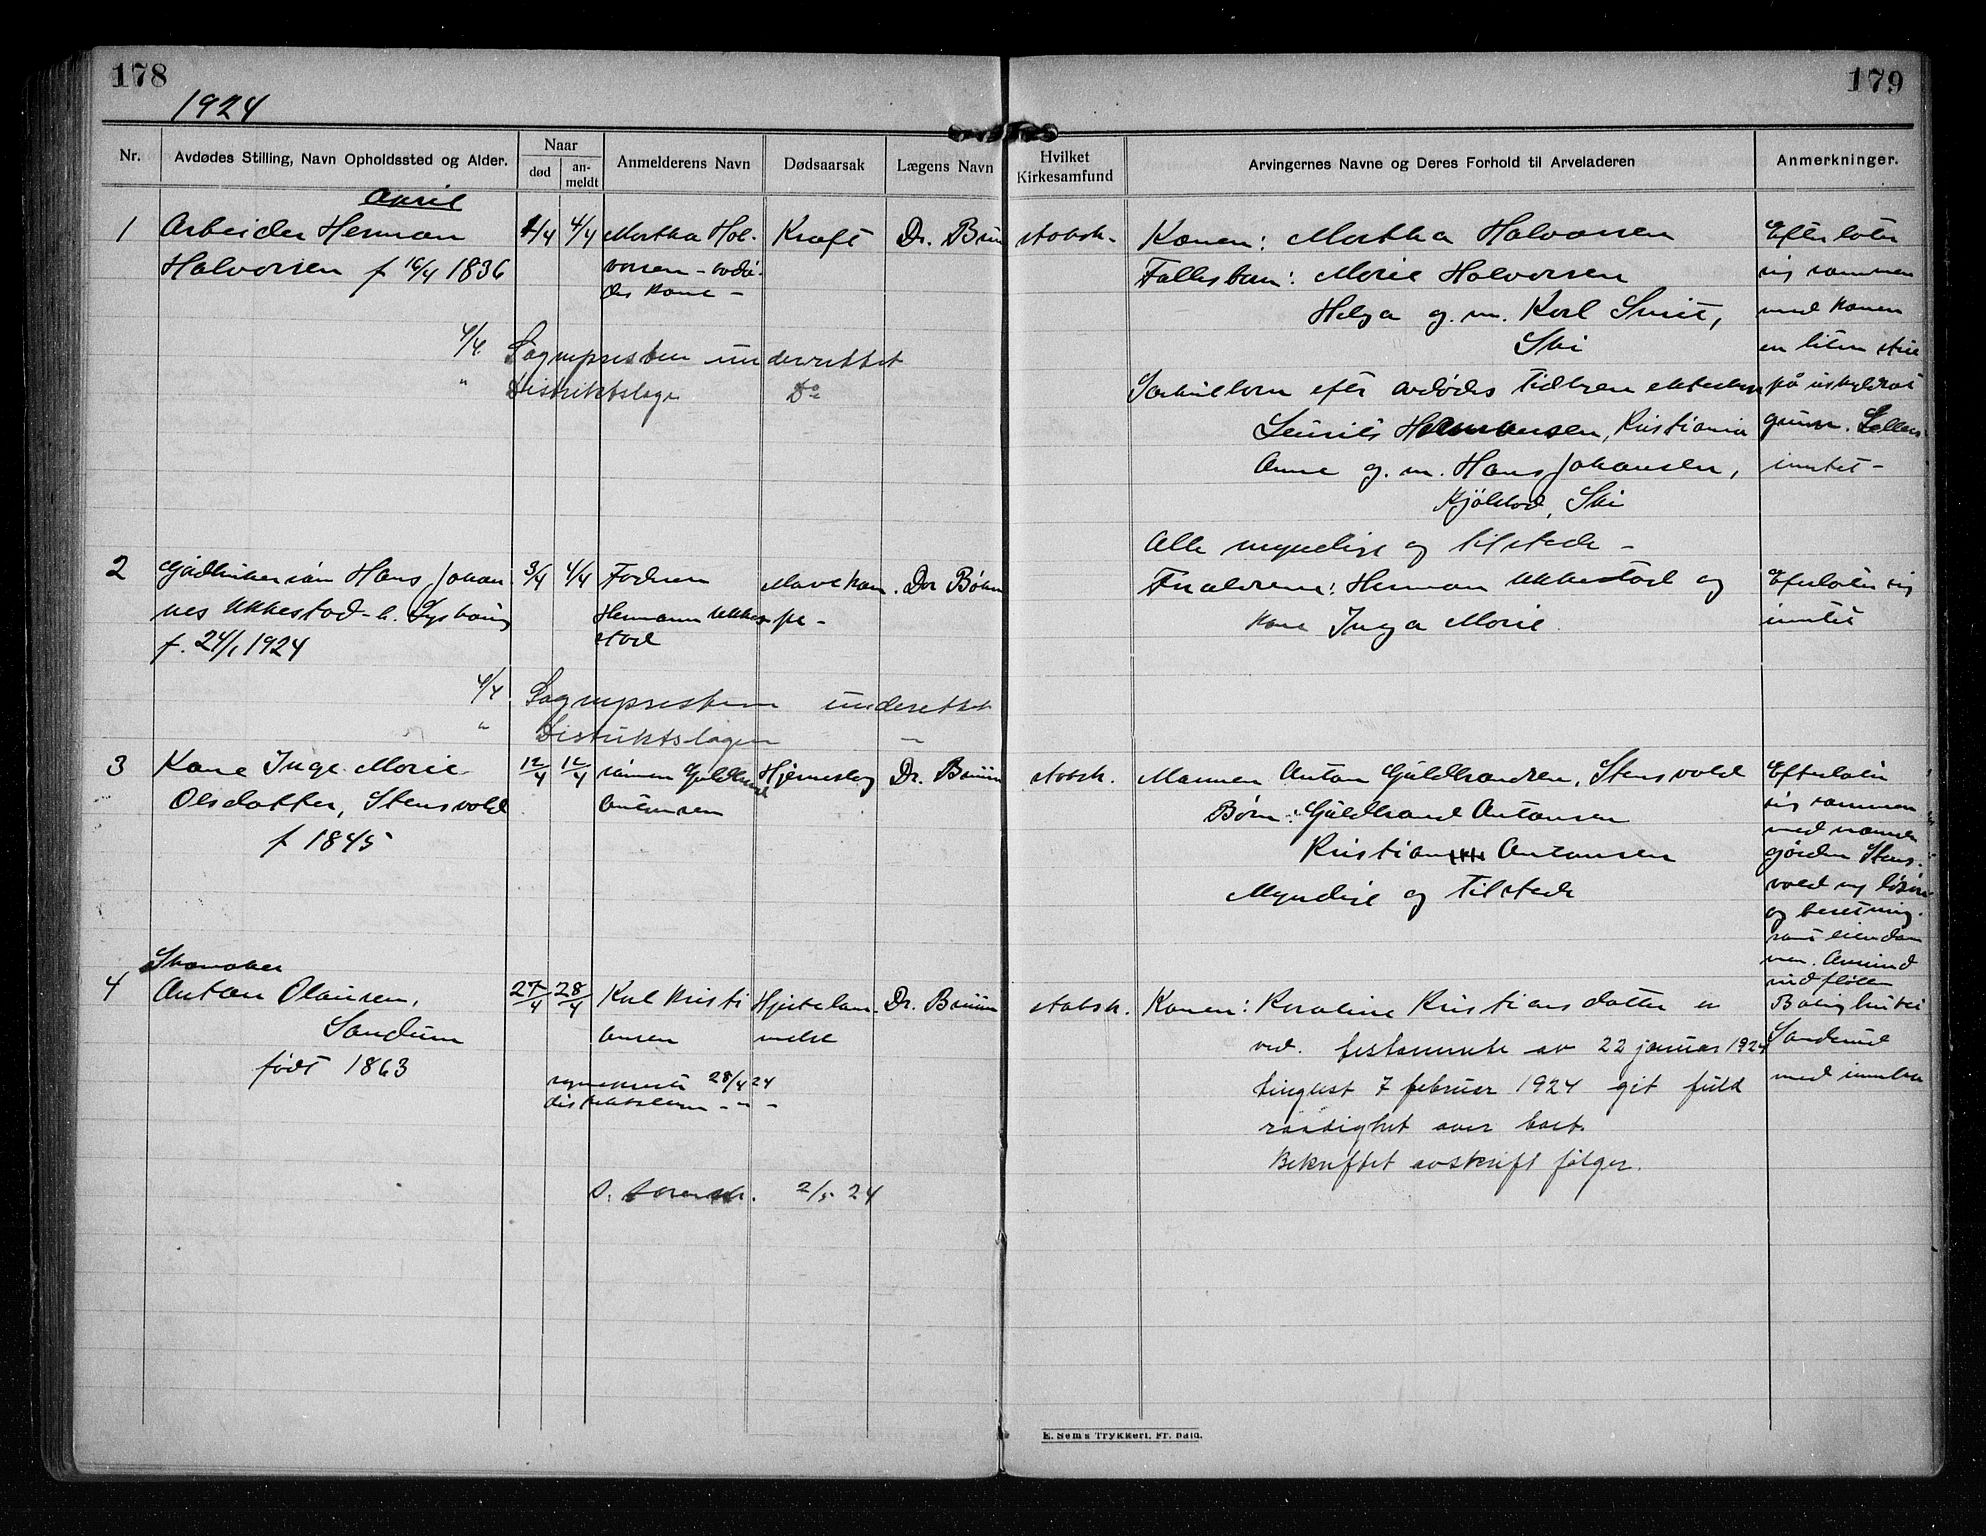 178
1924
179
Nr.
Avdødes Stilling, Navn Opholdssted og Alder.
Naar
død
an-
meldt
Anmelderens Navn
Dødsaarsak
Lægens Navn
Hvilket
Kirkesamfund
Arvingernes Navne og Deres Forhold til Arveladeren
Anmerkninger.
April
1 Arbeider Herman
Halvorsen f 16/4 1836
4/4
Martha Hal-
vorsen - avdø-
des kone -
Kræft
Dr. Bru
statsk.
Konen: Martha Halvorsen
Fællesbarn: Marie Halvorsen
Helga g. m. Karl
Ski
avdødes tidligere
Hermansen, Kristiania
Anna g. m. Hans Johansen,
Kjølstad, Ski
Alle myndige og tilstede -
Efterlater
sig sammen
med konen
en liten stue
på
grunn.
inntet -
4/4 Sognepresten underrettet
" Distriktslæge Do
2 Gårdbruker søn Hans Johan-
nes Ukkestad
f. 24/1 1924
3/4 4/4
Fadren
Hermann Ukke-
stad
Mavekram-
pe -
Dr Bøhm
Foreldrene: Herman Ukkestad og
kone Inga Marie.
Efterlater sig
inntet
4/4 Sognepresten underettet
" Distriktslægen -
3 Kone Inge Marie
Olsdatter, Stensvold
f 1845
12/4 12/4
sønnen Guldbrand
Antonsen
Hjerneslag
Dr. Bruun
statsk.
Mannen Anton Guldbrandsen, Stensvold
Børn: Guldbrand Antonsen
Kristian Antonsen
Myndige og tilstede
Efterlater
sig sammen
med mannen
gården Stens-
vold og løsøre
og besetning.
4 Skomaker
Anton Olausen,
Sandum
født 1863
27/4 28/4
Karl Kristi
ansen
Hjertelam-
melse
Dr. Bruun
statsk.
Konen: Karoline Kristiansdatter er
ved testamente av 22 januar 1924
tinglyst 7 februar 1924 git fuld
raadighet over boet.
Bekræftet avskrift følger.
Sandum
med
28/4 24
- " -
2/5 24
E. Sems Trykkeri, Fr. hald.